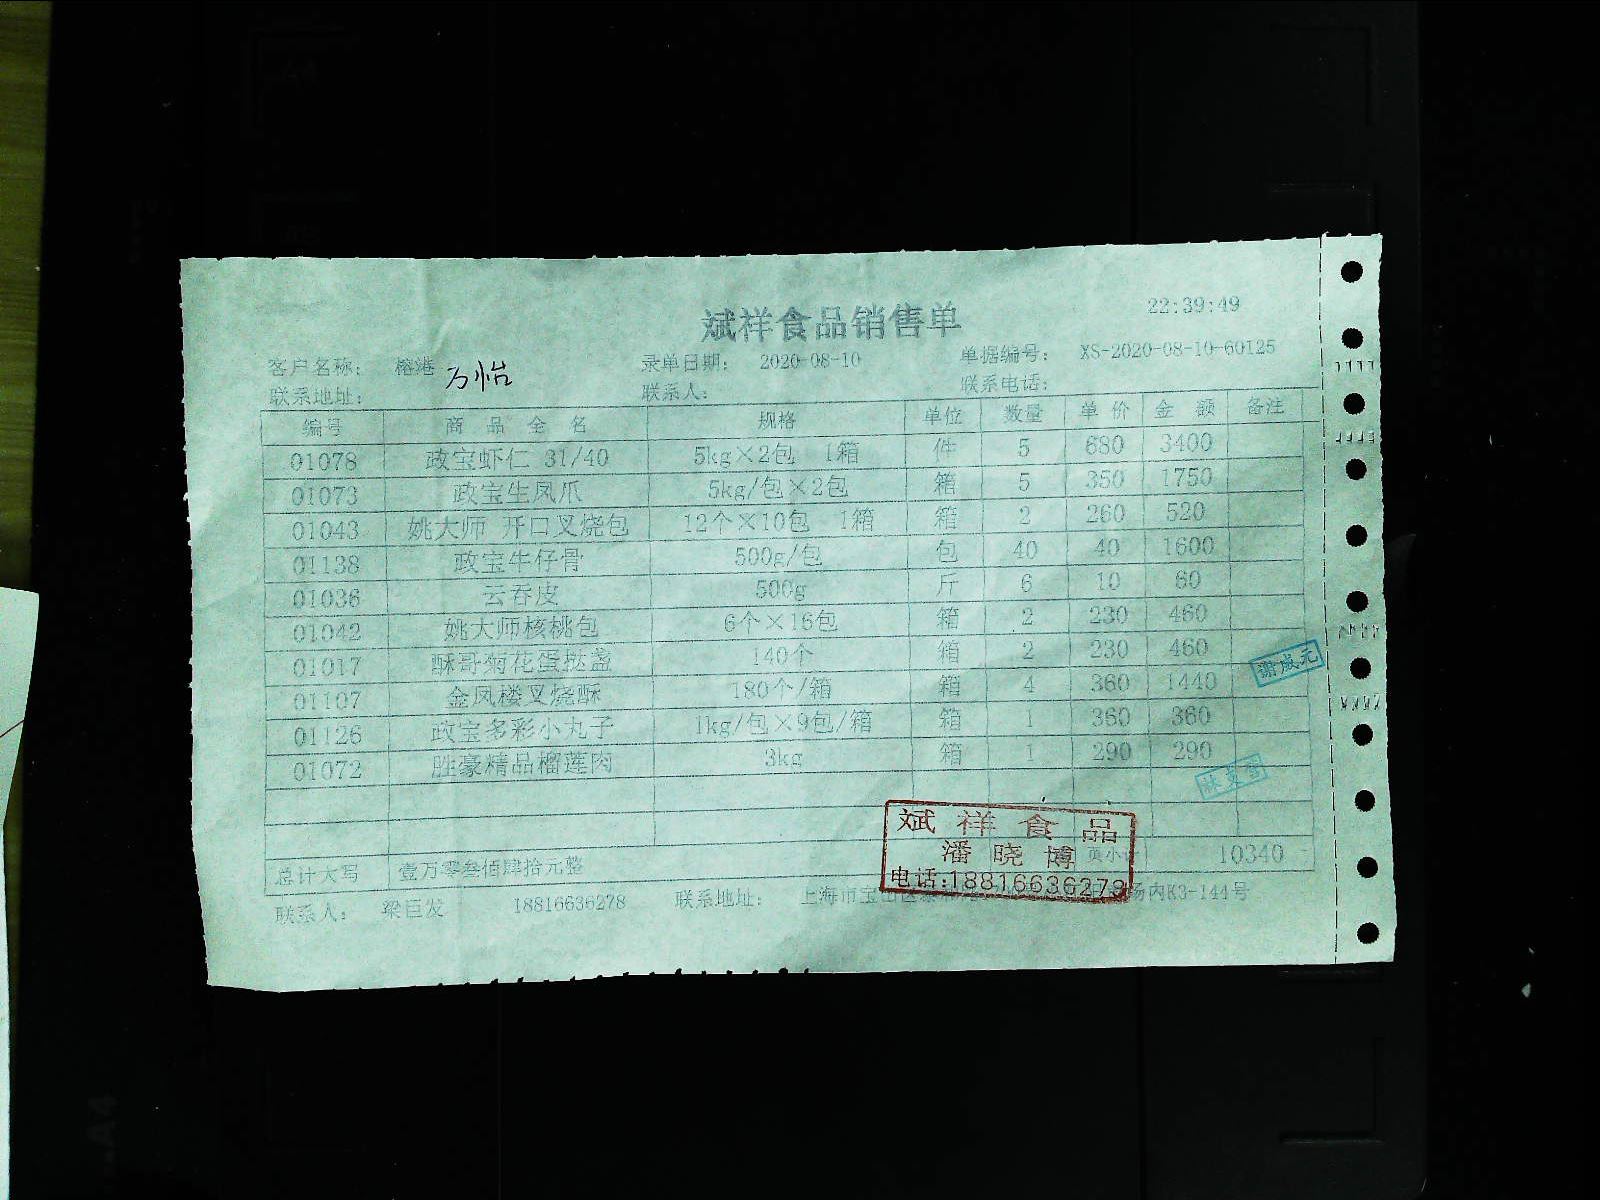 斌祥食品销售单
22:39:49
客户名称： 榕港 万怡 录单日期： 2020-08-10 单据编号： XS-2020-08-10-60125
联系地址： 联系人： 联系电话：
编号 商品全名 规格 单位 数量 单价 金额 备注
01078 政宝虾仁 31/40 5kg×2包 1箱 件 5 680 3400
01073 政宝生凤爪 5kg/包×2包 箱 5 350 1750
01043 姚大师 开口叉烧包 12个×10包 1箱 箱 2 260 520
01138 政宝牛仔骨 500g/包 包 40 40 1600
01036 云吞皮 500g 斤 6 10 60
01042 姚大师核桃包 6个×16包 箱 2 230 460
01017 酥哥菊花蛋挞盏 140个 箱 2 230 460
01107 金凤楼叉烧酥 180个/箱 箱 4 360 1440
01126 政宝多彩小丸子 1kg/包×9包/箱 箱 1 360 360
01072 胜豪精品榴莲肉 3kg 箱 1 290 290
谢成元
斌祥食品
潘晓博
电话:18816636278
总计大写 壹万零叁佰肆拾元整 页小 10340
联系人： 梁巨发 18816636278 联系地址： 上海市宝山区 场内K3-144号